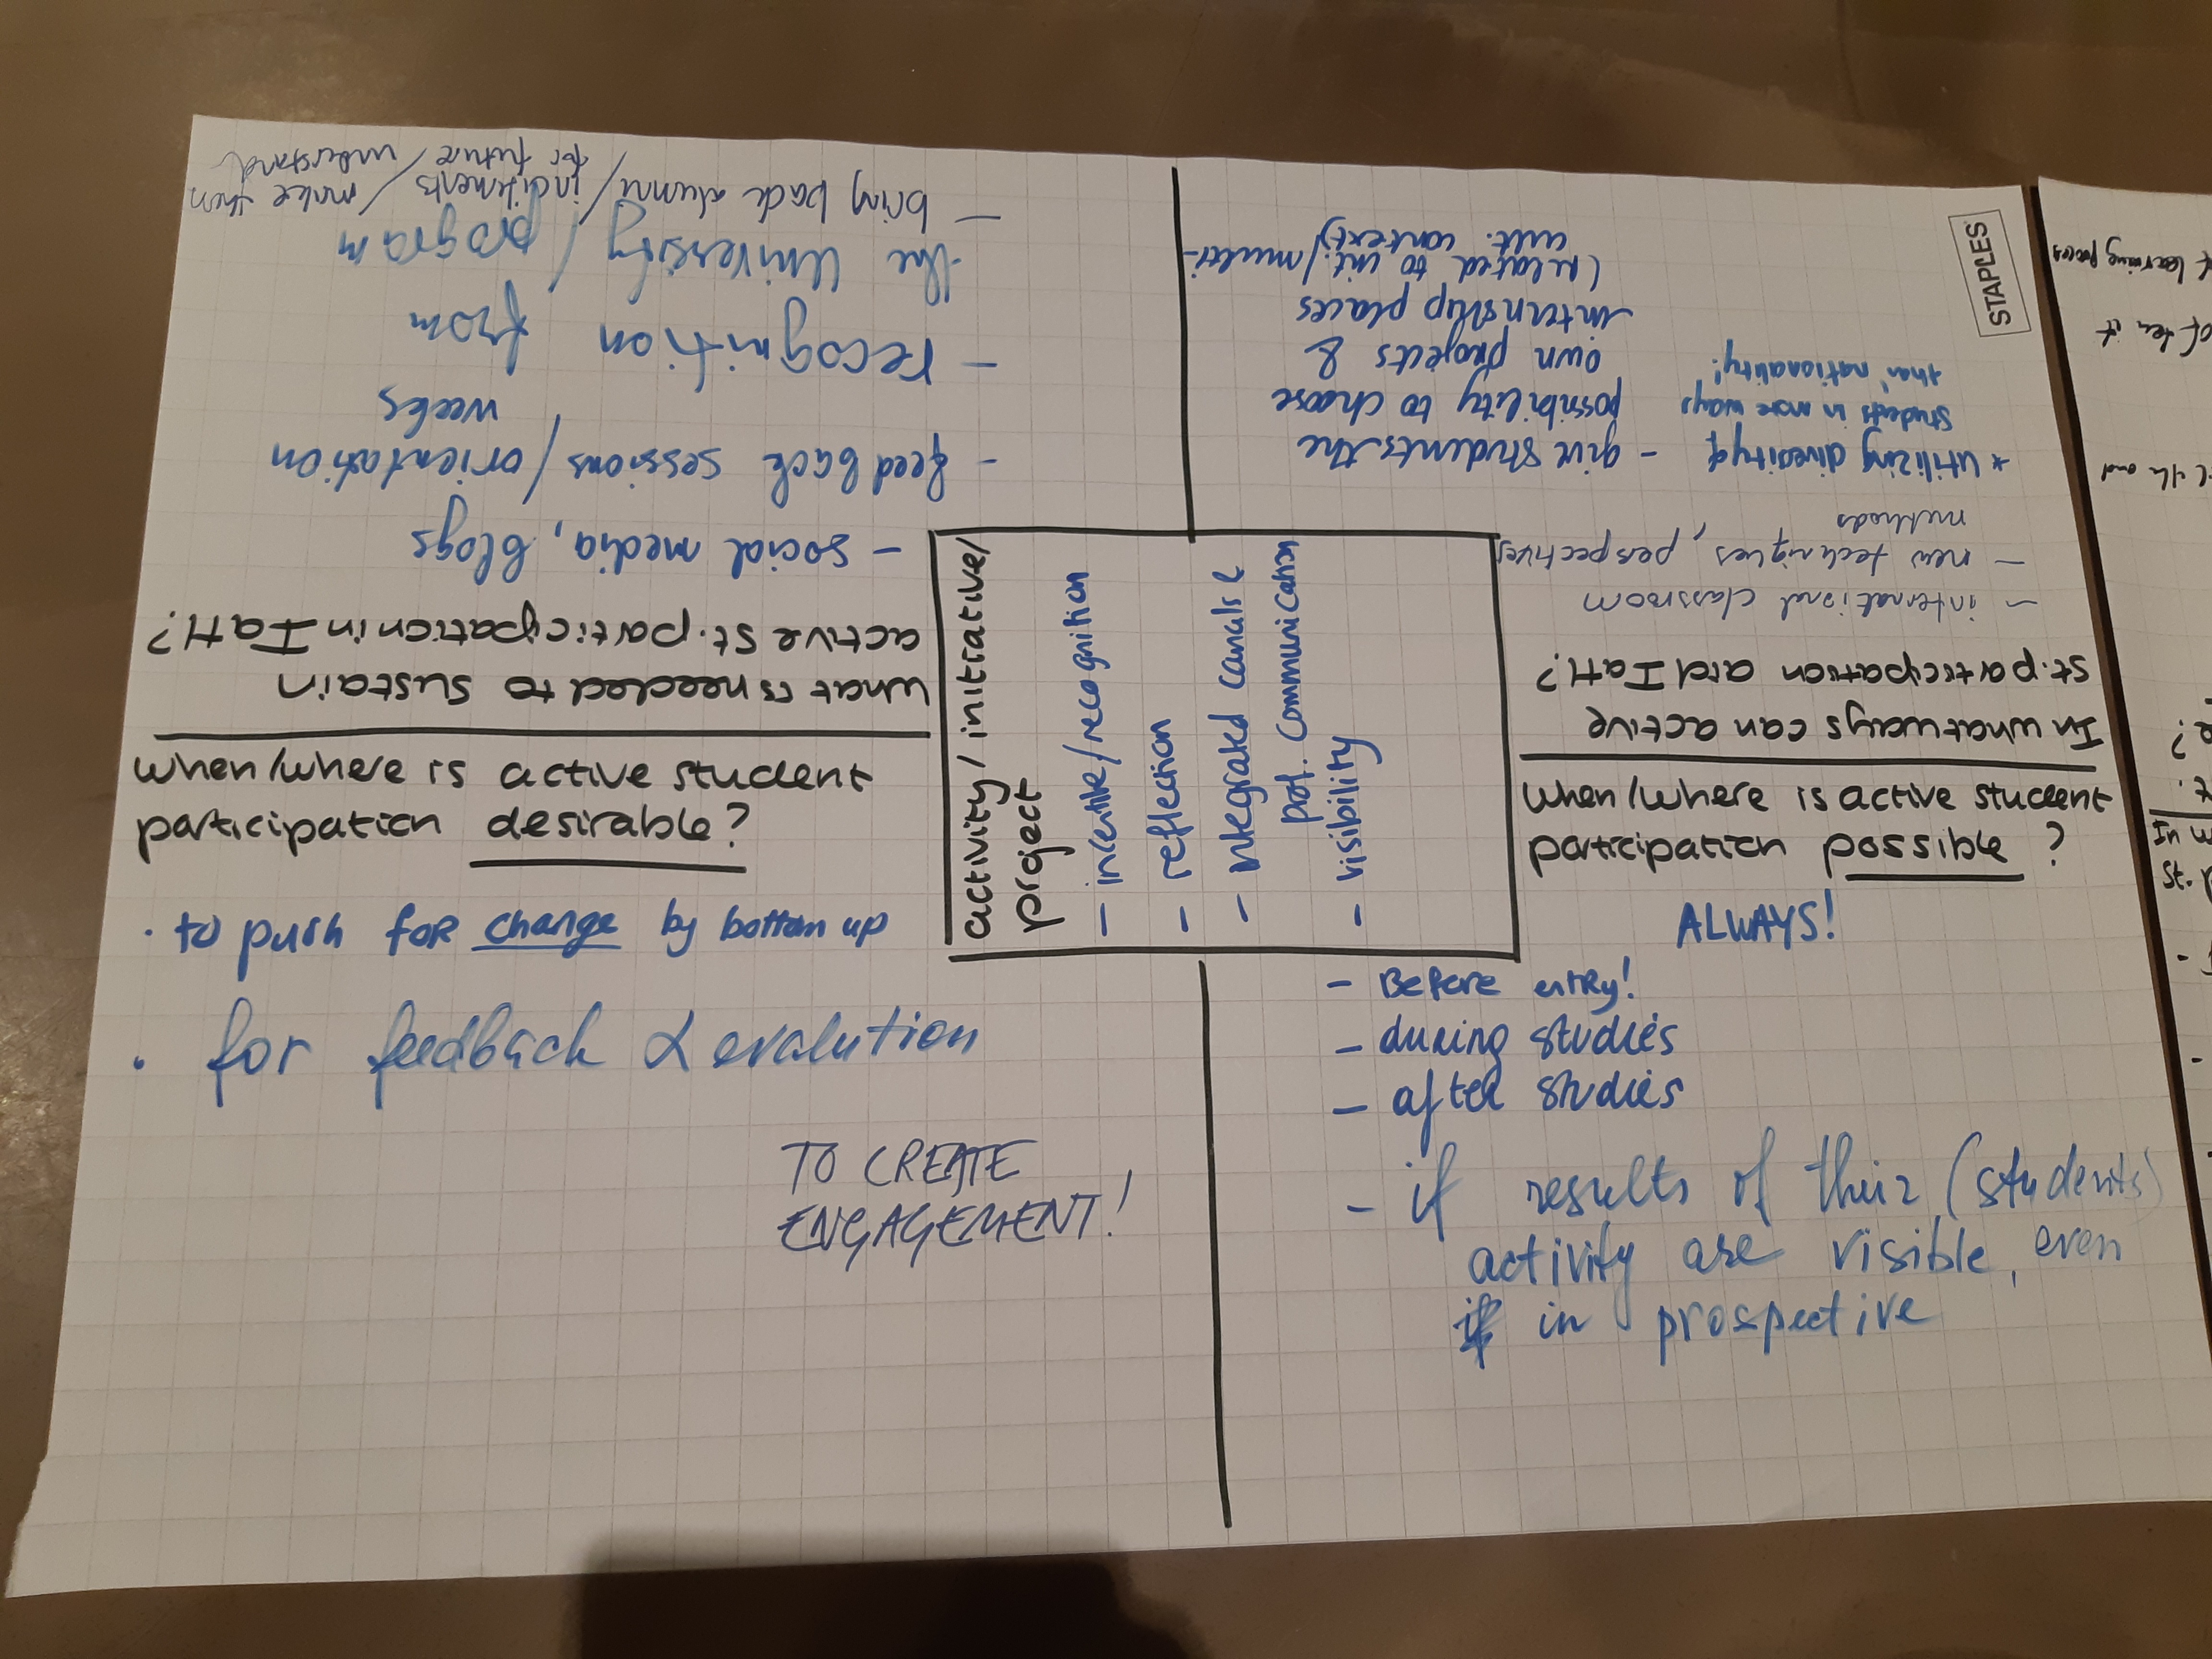 When/where is active student
participation desirable?
· to push for change by bottom up
· for feedback & evalution
TO CREATE
ENGAGEMENT!
When/where is active student
participation possible?
ALWAYS!
- Before entry!
- during studies
- after studies
- if results of their (students)
activity are visible, even
if in prospective
activity/initiative/
project
- incentive/recognition
- reflection
- integrated canals &
prof. communication
- visibility
In what ways can active
st. participation aid IatH?
- international classroom
- new techniques, perspectives,
methods
* utilizing diversity of
students in more ways
than 'nationality'!
- give students the
possibility to choose
own projects &
internship places
(related to int./multi-
cult. context)
What is needed to sustain
active st. participation in IatH?
- social media, blogs
- feedback sessions/orientation
weeks
- recognition from
the University/program
- bring back alumni/incitements/make them
for future/understand
STAPLES
of learning process
often it
and